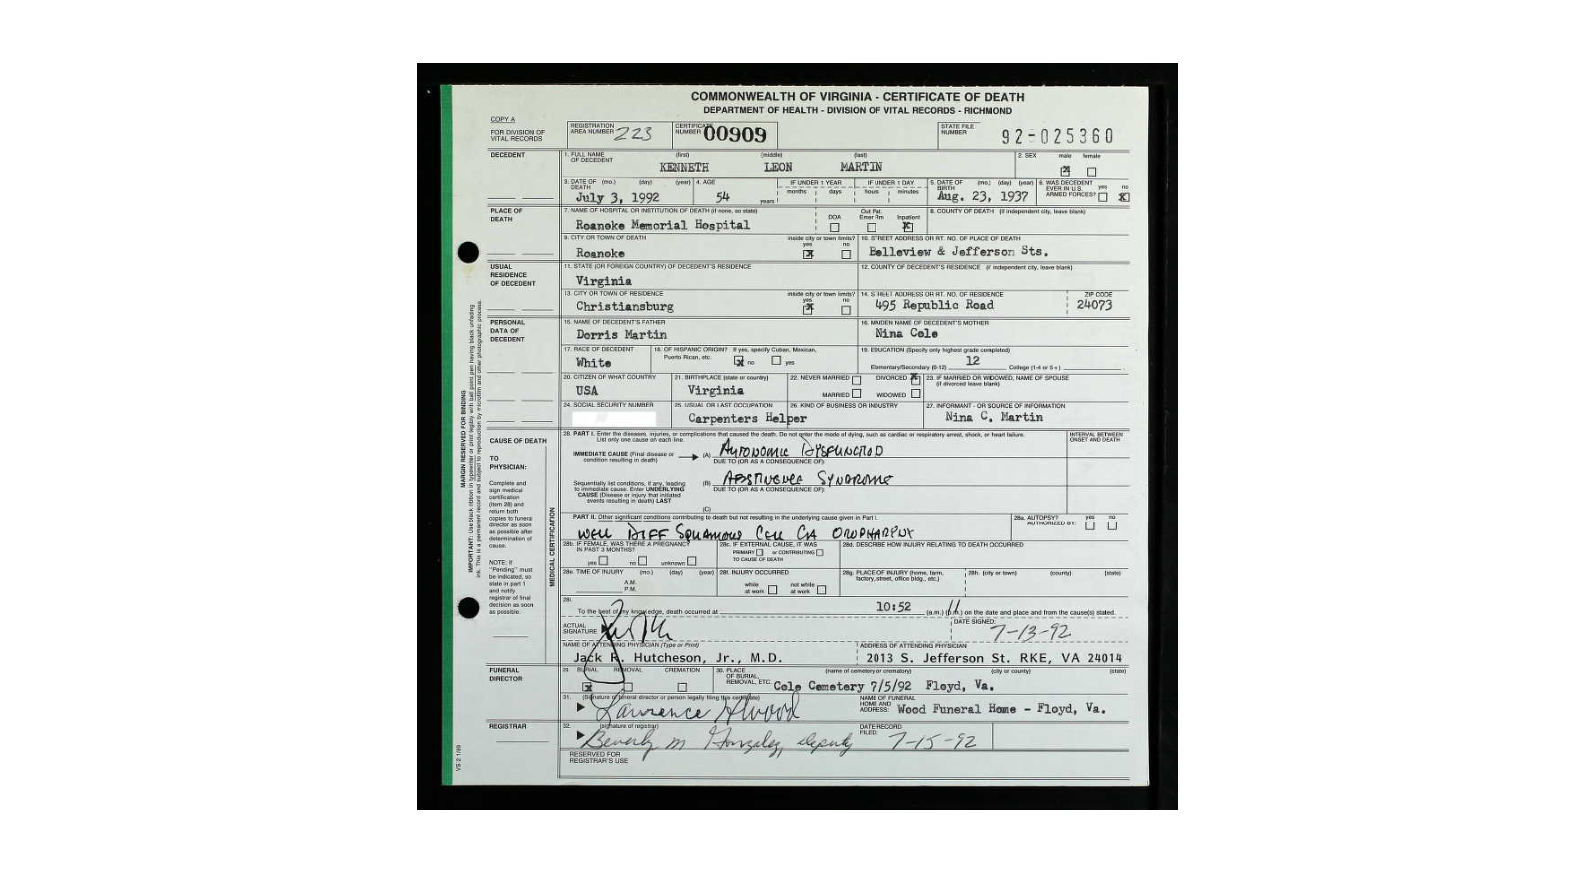 COMMONWEALTH OF VIRGINIA - CERTIFICATE OF DEATH
DEPARTMENT OF HEALTH - DIVISION OF VITAL RECORDS - RICHMOND
COPY A
FOR DIVISION OF VITAL RECORDS
REGISTRATION AREA NUMBER 223
CERTIFICATE NUMBER 00909
STATE FILE NUMBER 92-025360
DECEDENT
1. FULL NAME OF DECEDENT (first) (middle) (last)
KENNETH LEON MARTIN
2. SEX male female
X
3. DATE OF DEATH (mo.) (day) (year)
July 3, 1992
4. AGE
54 years
IF UNDER 1 YEAR months days
IF UNDER 1 DAY hours minutes
5. DATE OF BIRTH (mo.) (day) (year)
Aug. 23, 1937
6. WAS DECEDENT EVER IN U.S. ARMED FORCES? yes no
X
PLACE OF DEATH
7. NAME OF HOSPITAL OR INSTITUTION OF DEATH (if none, so state)
Roanoke Memorial Hospital
DOA Out Pat. Emer Rm Inpatient
X
8. COUNTY OF DEATH (if independent city, leave blank)
9. CITY OR TOWN OF DEATH
Roanoke
inside city or town limits? yes no
X
10. STREET ADDRESS OR RT. NO. OF PLACE OF DEATH
Belleview & Jefferson Sts.
USUAL RESIDENCE OF DECEDENT
11. STATE (OR FOREIGN COUNTRY) OF DECEDENT'S RESIDENCE
Virginia
12. COUNTY OF DECEDENT'S RESIDENCE (if independent city, leave blank)
13. CITY OR TOWN OF RESIDENCE
Christiansburg
inside city or town limits? yes no
X
14. STREET ADDRESS OR RT. NO. OF RESIDENCE
495 Republic Road
ZIP CODE
24073
PERSONAL DATA OF DECEDENT
15. NAME OF DECEDENT'S FATHER
Dorris Martin
16. MAIDEN NAME OF DECEDENT'S MOTHER
Nina Cole
17. RACE OF DECEDENT
White
18. OF HISPANIC ORIGIN? If yes, specify Cuban, Mexican, Puerto Rican, etc.
X no yes
19. EDUCATION (Specify only highest grade completed)
Elementary/Secondary (0-12) 12 College (1-4 or 5+)
20. CITIZEN OF WHAT COUNTRY
USA
21. BIRTHPLACE (state or country)
Virginia
22. NEVER MARRIED DIVORCED X
MARRIED WIDOWED
23. IF MARRIED OR WIDOWED, NAME OF SPOUSE (if divorced leave blank)
24. SOCIAL SECURITY NUMBER
25. USUAL OR LAST OCCUPATION
Carpenters Helper
26. KIND OF BUSINESS OR INDUSTRY
27. INFORMANT - OR SOURCE OF INFORMATION
Nina C. Martin
CAUSE OF DEATH
TO PHYSICIAN:
Complete and sign medical certification (item 28) and return both copies to funeral director as soon as possible after determination of cause.
NOTE: If "Pending" must be indicated, so state in part 1 and notify registrar of final decision as soon as possible.
MARGIN RESERVED FOR BINDING
MEDICAL CERTIFICATION
28. PART I. Enter the diseases, injuries, or complications that caused the death. Do not enter the mode of dying, such as cardiac or respiratory arrest, shock, or heart failure. List only one cause on each line.
INTERVAL BETWEEN ONSET AND DEATH
IMMEDIATE CAUSE (Final disease or condition resulting in death)
(A) Autonomic Dysfunction
DUE TO (OR AS A CONSEQUENCE OF):
Sequentially list conditions, if any, leading to immediate cause. Enter UNDERLYING CAUSE (Disease or injury that initiated events resulting in death) LAST
(B) Abstinence Syndrome
DUE TO (OR AS A CONSEQUENCE OF):
(C)
PART II. Other significant conditions contributing to death but not resulting in the underlying cause given in Part I.
Well Diff Squamous Cell CA Oropharynx
28a. AUTOPSY? AUTHORIZED BY: yes no
28b. IF FEMALE, WAS THERE A PREGNANCY IN PAST 3 MONTHS? yes no unknown
28c. IF EXTERNAL CAUSE, IT WAS PRIMARY or CONTRIBUTING TO CAUSE OF DEATH
28d. DESCRIBE HOW INJURY RELATING TO DEATH OCCURRED
28e. TIME OF INJURY (mo.) (day) (year) A.M. P.M.
28f. INJURY OCCURRED while at work not while at work
28g. PLACE OF INJURY (home, farm, factory, street, office bldg., etc.)
28h. (city or town) (county) (state)
28i.
To the best of my knowledge, death occurred at 10:52 (a.m.) (p.m.) on the date and place and from the cause(s) stated.
ACTUAL SIGNATURE
DATE SIGNED:
7-13-92
NAME OF ATTENDING PHYSICIAN (Type or Print)
Jack R. Hutcheson, Jr., M.D.
ADDRESS OF ATTENDING PHYSICIAN
2013 S. Jefferson St. RKE, VA 24014
FUNERAL DIRECTOR
29. BURIAL REMOVAL CREMATION
X
30. PLACE OF BURIAL, REMOVAL, ETC. (name of cemetery or crematory) (city or county) (state)
Cole Cemetery 7/5/92 Floyd, Va.
31. (Signature of funeral director or person legally filing this certificate)
Lawrence H Wood
NAME OF FUNERAL HOME AND ADDRESS: Wood Funeral Home - Floyd, Va.
REGISTRAR
32. (signature of registrar)
Beverly M Gonzalez, deputy
DATE RECORD FILED: 7-15-92
RESERVED FOR REGISTRAR'S USE
VS 2 1/89